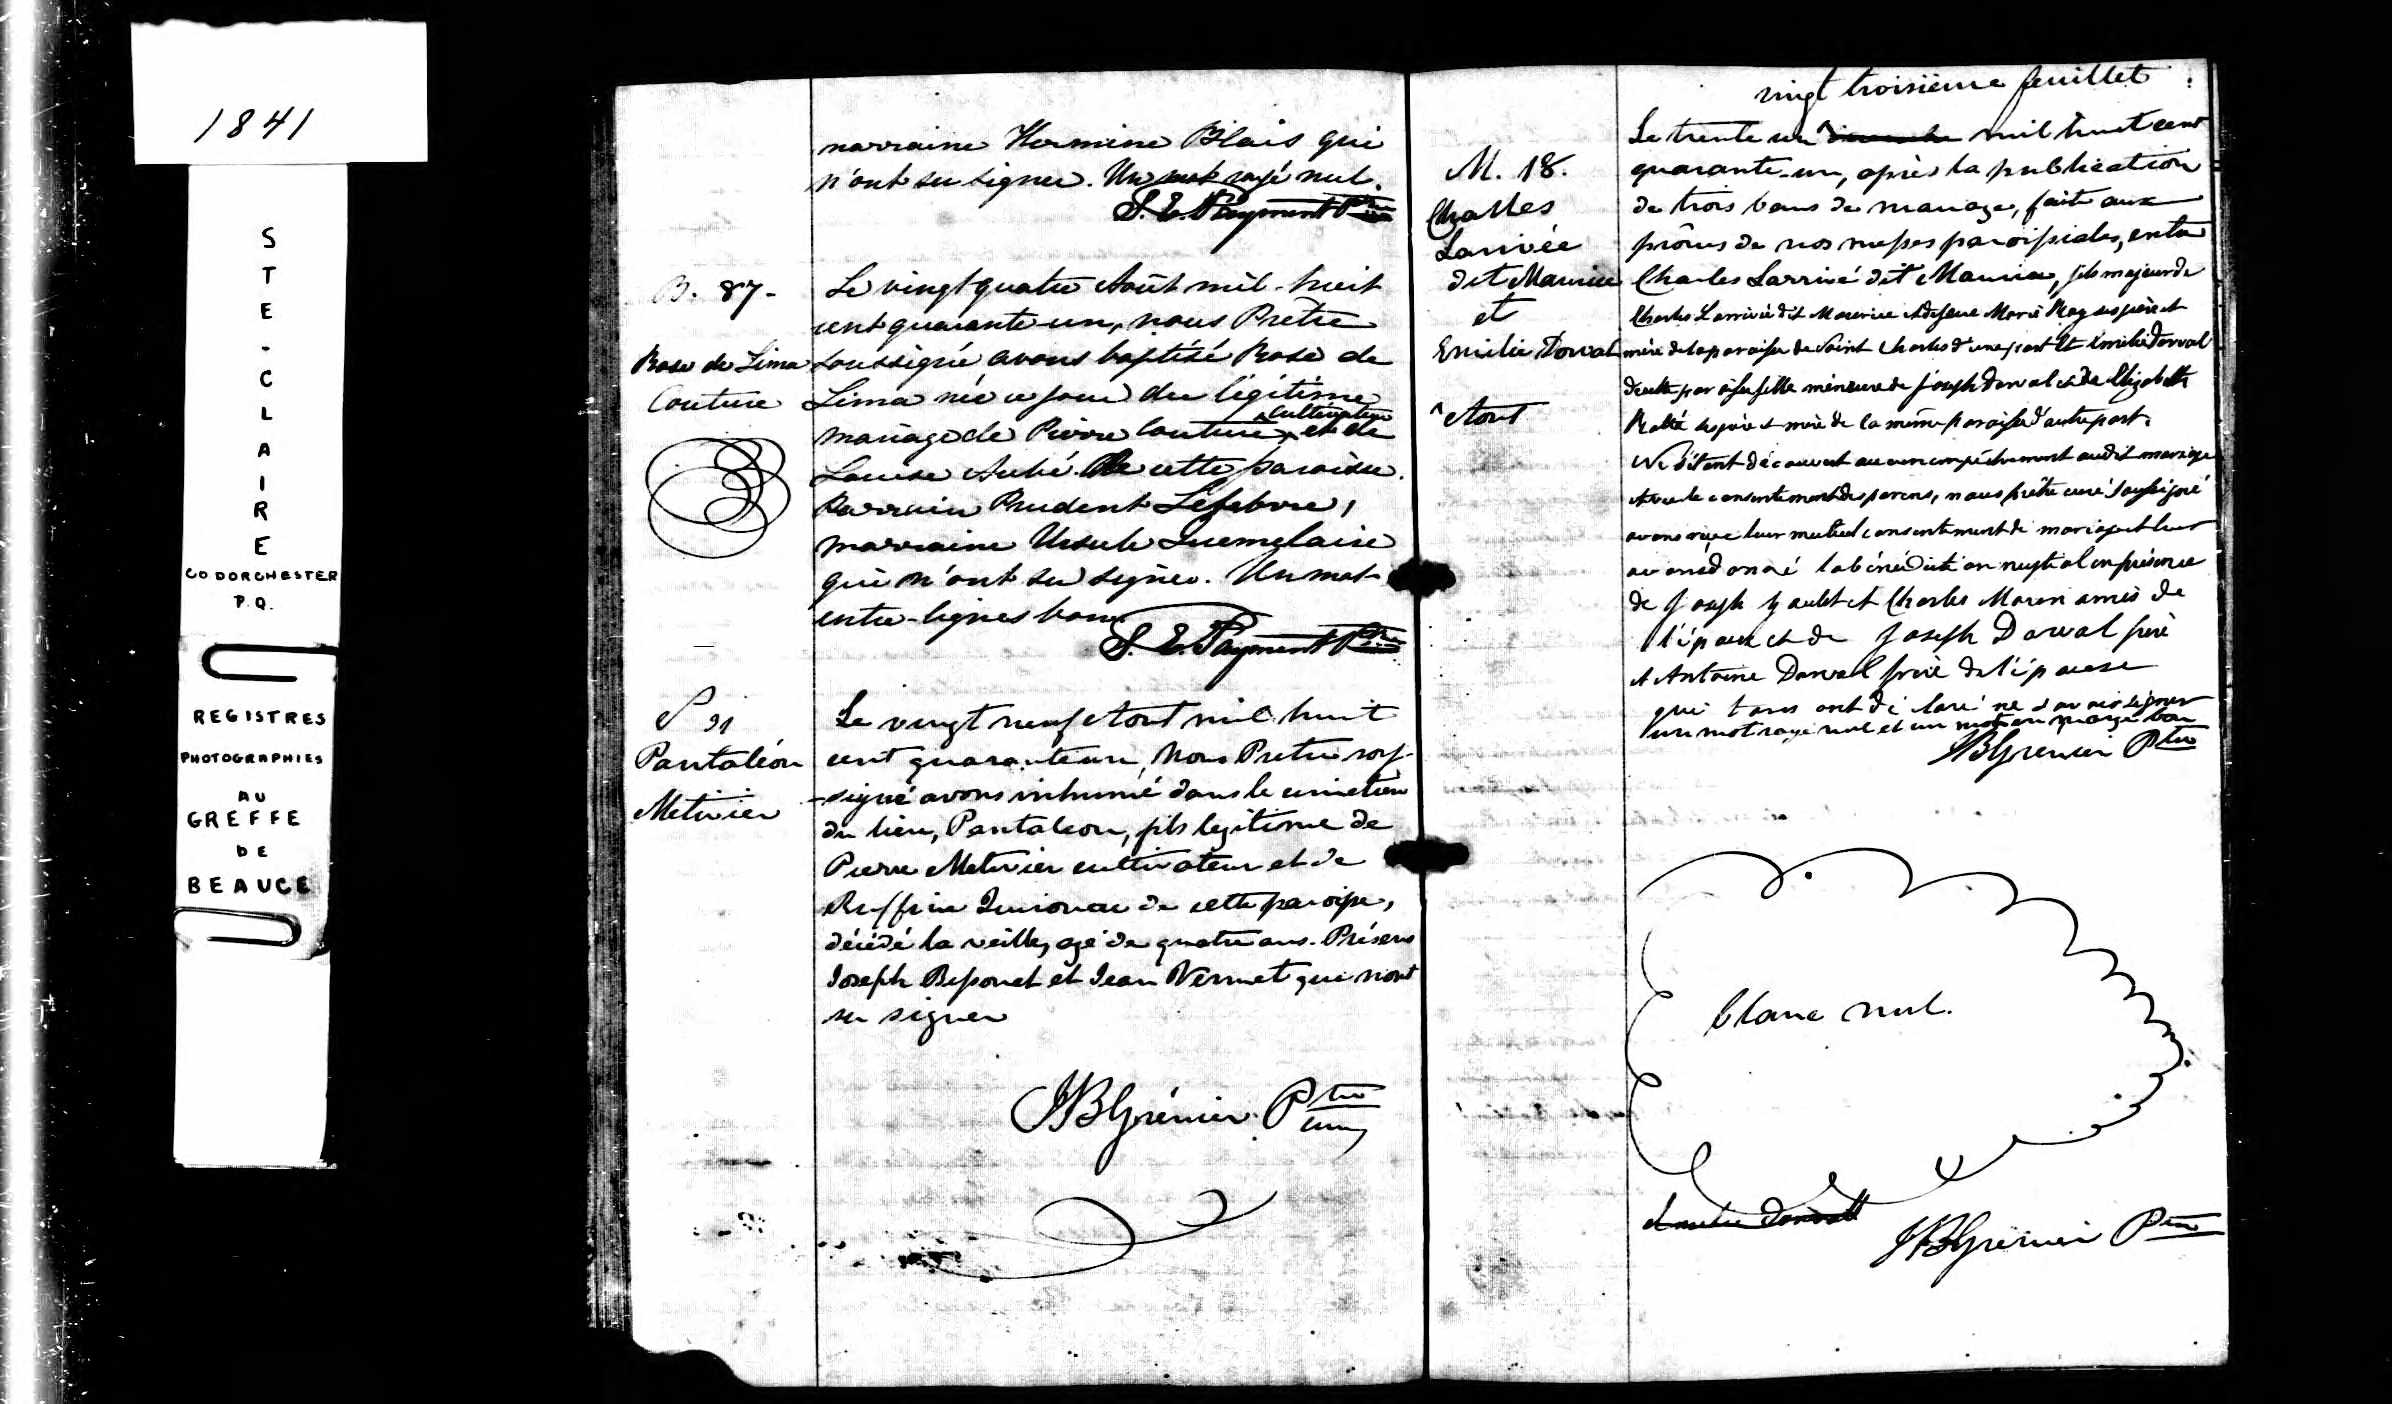 1841
STE-CLAIRE
CO DORCHESTER
P.Q.
REGISTRES
PHOTOGRAPHIES
AU
GREFFE
DE
BEAUCE
marraine Hermine Blais qui
n'ont su signer. Un mot rayé nul.
S. E. Payment Ptre
B. 87-
Rose de Lima
Couture
Le vingt quatre Août mil-huit
cent quarante-un, nous Prêtre
soussigné avons baptisé Rose de
Lima née ce jour du légitime
cultivateur
mariage de Pierre Couture et de
Louise Aubé de cette paroisse.
Parrain Prudent Lefebvre,
marraine Ursule
qui n'ont su signer. Un mot
entre-lignes bon.
S. E. Payment Ptre
S 31
Pantaléon
Metivier
Le vingt neuf Aout mil huit
cent quarante un, Nous Pretre sous-
-signé avons inhumé dans le cimetière
du lieu, Pantaleon, fils legitime de
Pierre Metivier cultivateur et de
de cette paroisse,
décédé la veille, agé de quatre ans. Présens
Joseph et Jean Vermet qui n'ont
su signer
JBGrénier Ptre
vingt troisième feuillet
M. 18.
Charles
Larrivée
dit Maurice
et
Emilie Dorval
Aout
Le trente un mil huit cent
quarante-un, après la publication
de trois bans de mariage, faite aux
prônes de nos messes paroissiales, entre
Charles Larrivé dit Maurice, fils majeur de
Charles Larrivé dit Maurice et de feue Marie Roy ses père et
mère de la paroisse de Saint Charles d'une part Et Emilie Dorval
de cette paroisse fille mineure de Joseph Dorval et de Elizabeth
ses père et mère de la même paroisse d'autre part.
Ne s'étant découvert aucun empêchement audit mariage
Avec le consentement des parens, nous prêtre curé soussigné
avons reçu leur mutuel consentement de mariage et leur
avons donné la bénédiction nuptial en présence
de Joseph et Charles Morin amis de
l'époux et de Joseph Dorval père
et Antoine Dorval frère de l'épouse
qui tous ont déclaré ne savoir signer
un mot rayé nul et un mot en marge bon
JBGrenier Ptre
blanc nul.
JBGrénier Ptre